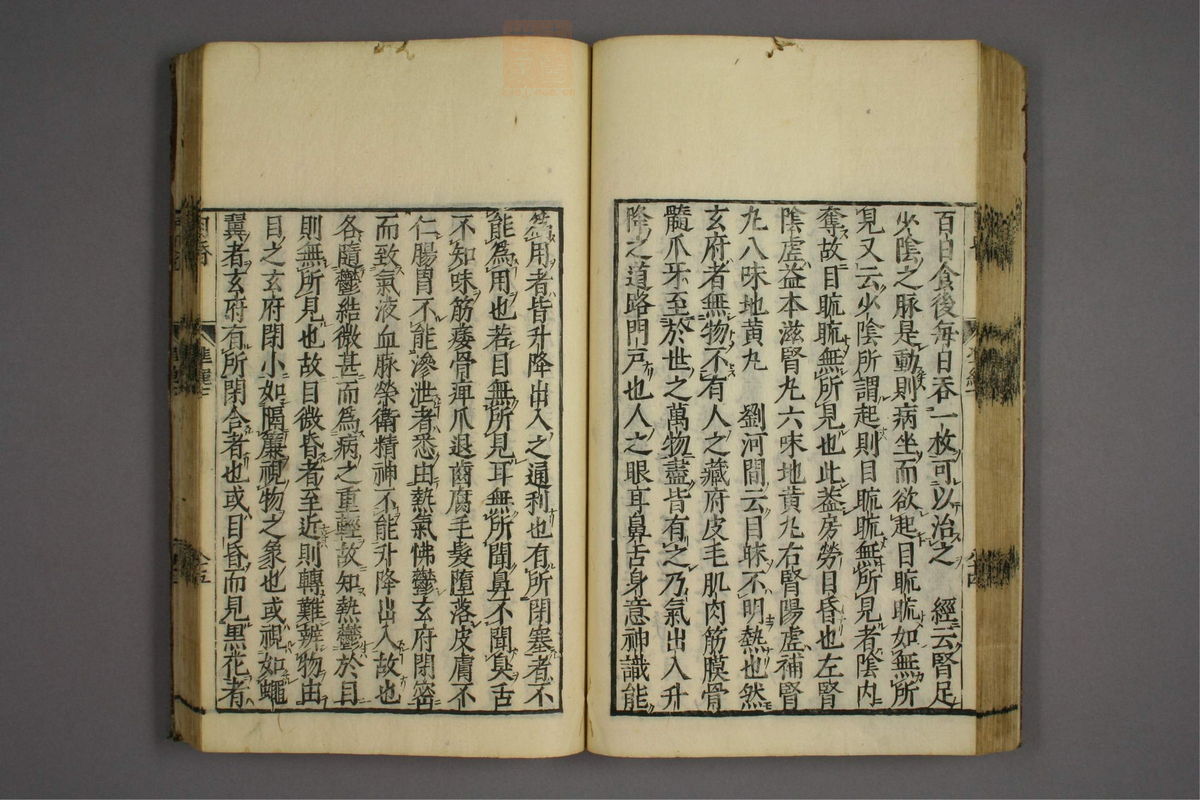 百日食後每日吞一枚可以治之　經云腎足
少陰之脉是動則病坐而欲起目䀮䀮如無所
見又云少陰所謂起則目䀮䀮無所見者陰内
奪故目䀮䀮無所見也此盖房勞目昏也左腎
陰虛益本滋腎丸六味地黄丸右腎陽虛補腎
丸八味地黄丸　劉河間云目昧不明熱也然
玄府者無物不有人之藏府皮毛肌肉筋膜骨
髓爪牙至於世之萬物盡皆有之乃氣出入升
降之道路門戸也人之眼耳鼻舌身意神識能
爲用者皆升降出入之通利也有所閉塞者不
能爲用也若目無所見耳無所聞鼻不聞臭舌
不知味筋痿骨痺爪退齒腐毛髮墮落皮膚不
仁腸胃不能滲泄者悉由熱氣佛鬱玄府閉密
而致氣液血脉榮衛精神不能升降出入故也
各隨鬱結微甚而爲病之重輕故知熱鬱於目
則無所見也故目微昏者至近則轉難辨物由
目之玄府閉小如隔簾視物之象也或視如蠅
翼者玄府有所閉合者也或目昏而見黒花者